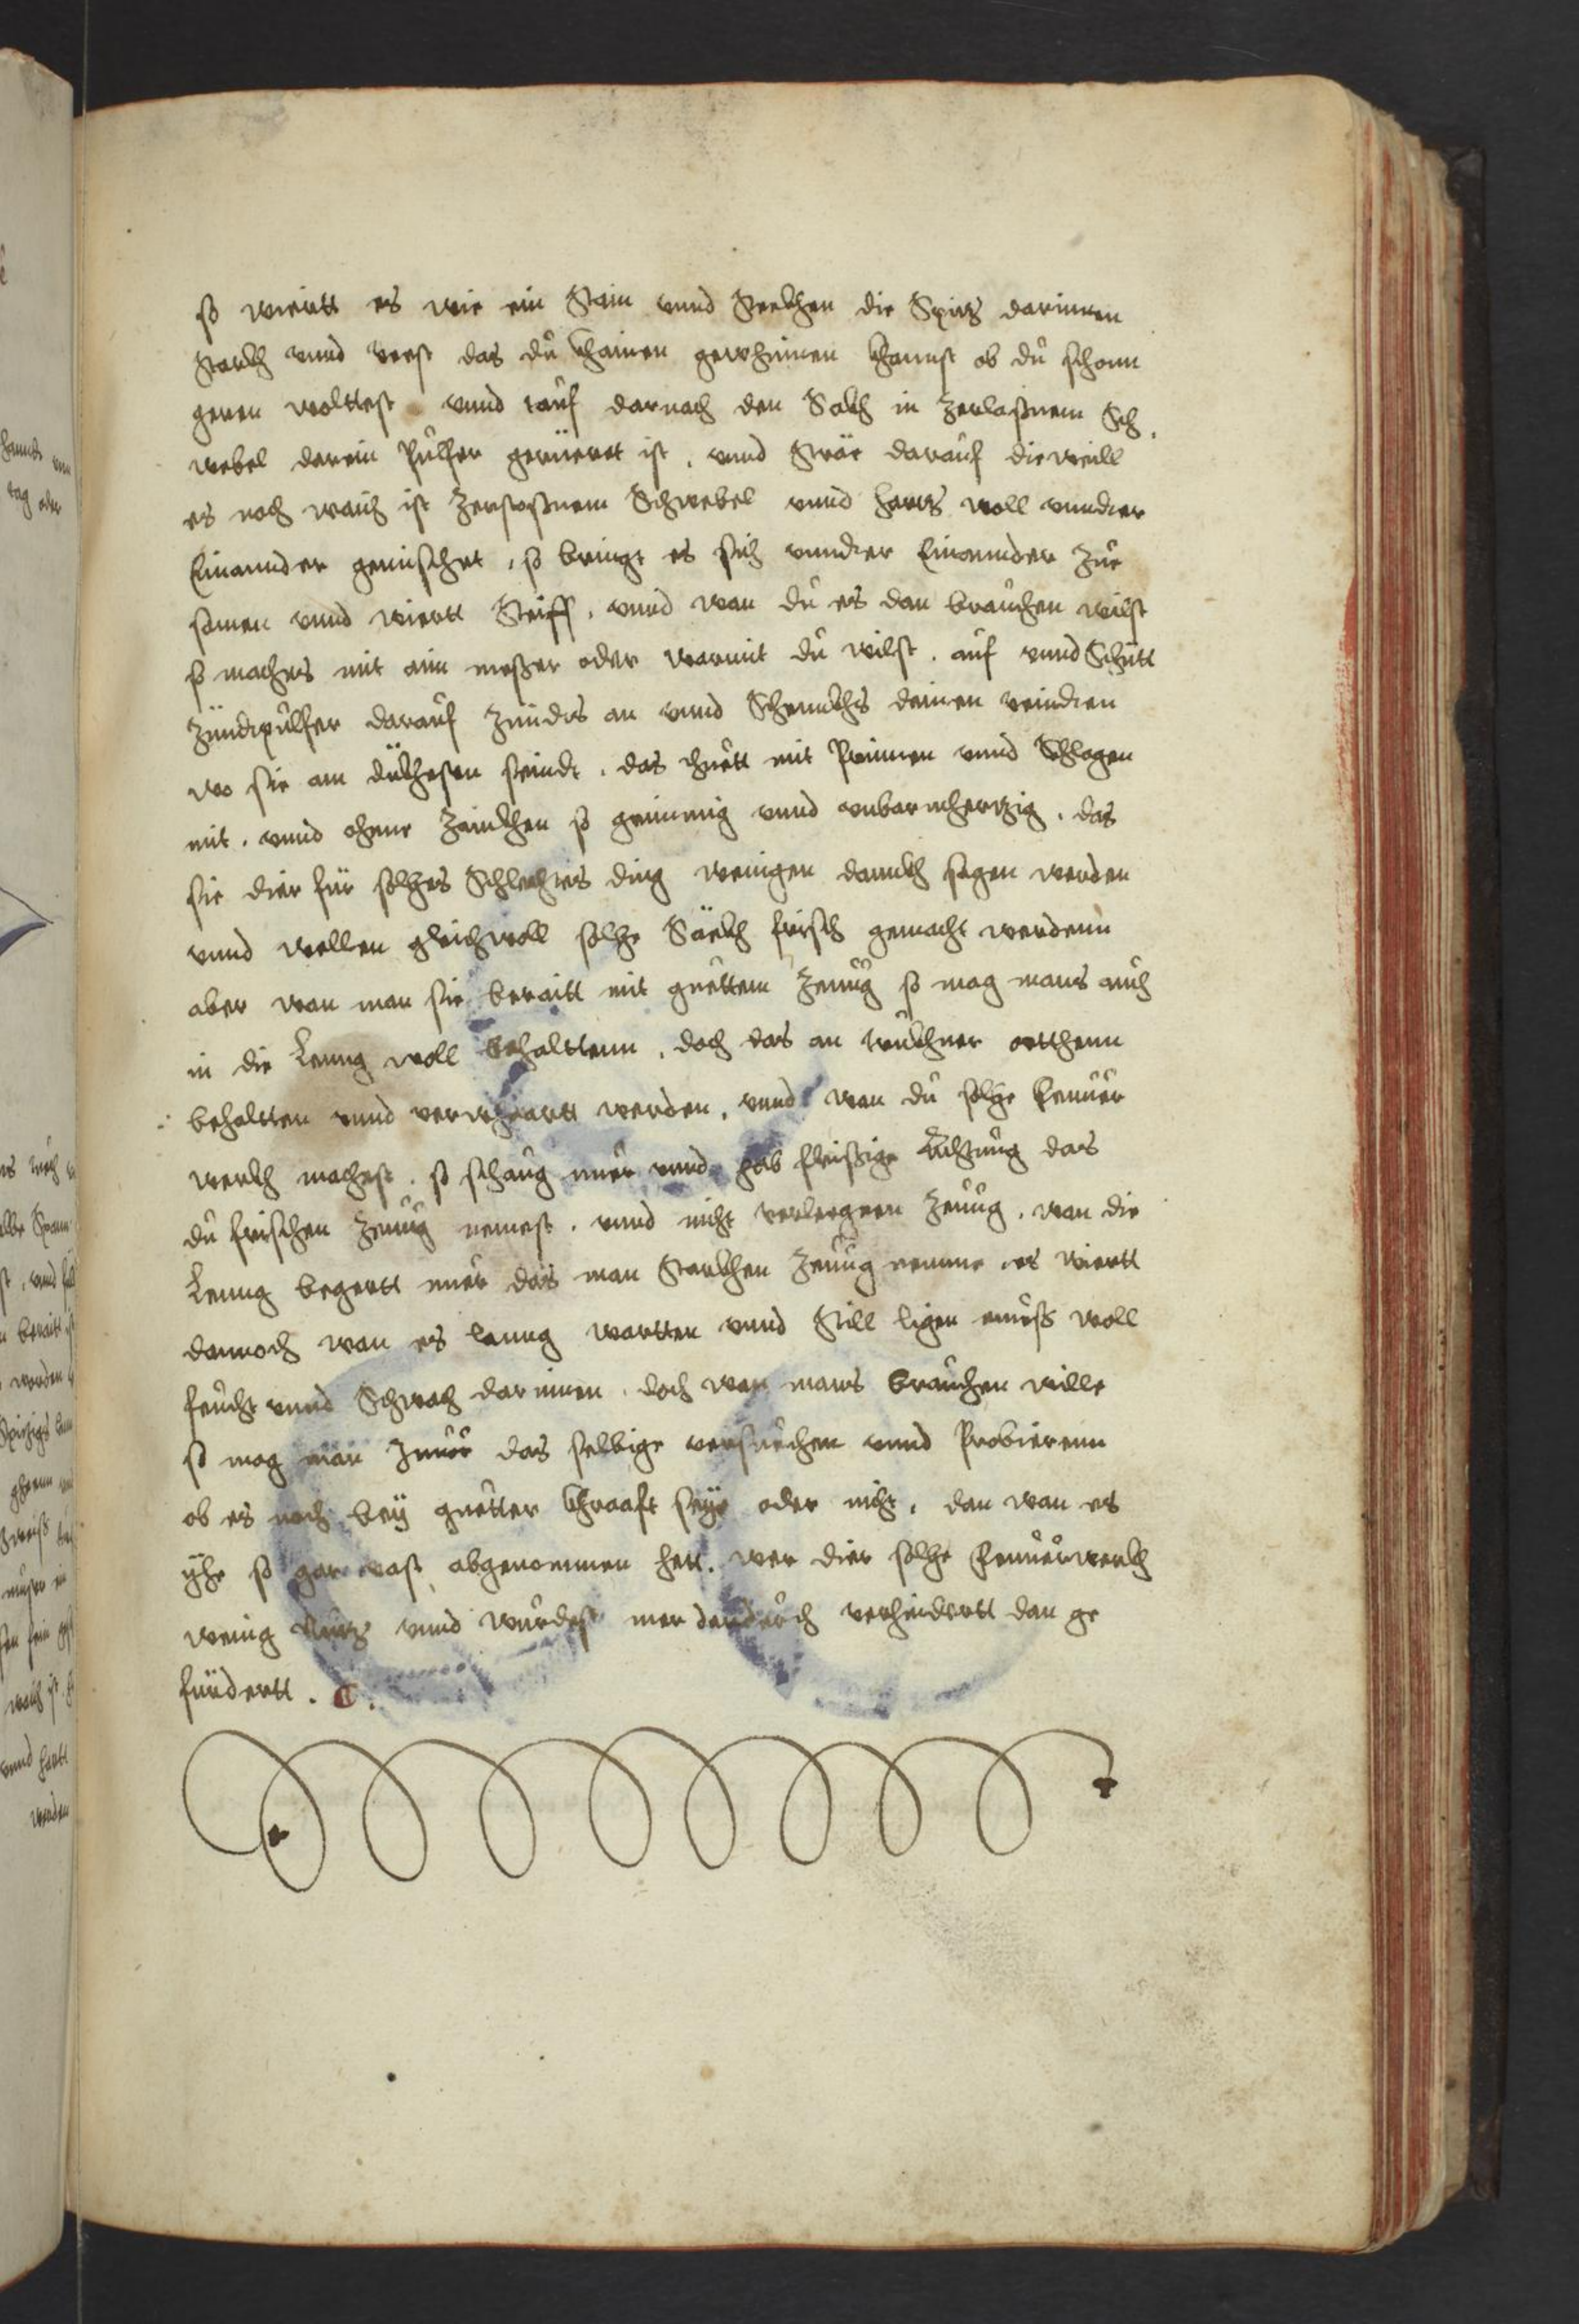 so wiertt es wie ein Stain vnnd Steckhen die Spitz darinnen
starckh vnnd vest das du khainen gewhinnen khannst ob du schonn
geren woltest vnnd tauf darnach den Sackh in zerlaßnem Sch,
webel darein Pulfer gerüertt ist, vnnd Sträe darauf dieweill
es noch waich ist zerstoßnem Schwebel vnnd hartz woll vnndter
Einannder gemischet, so bringt es sich vnndter Einannder zue
samen vnnd wiertt Steiff, vnnd wan du es dan brauchen wilst
so machets mit aim meßer oder warmit du wilst, auf vnnd Schütt
Zündtpulfer darauf zündts an vnnd Schennkhs deinen veindten
wo sie am dickhesten seindt, das thuett mit Prinnen vnnd Schlagen
mit, vnnd ohnne Zainkhen so grimmig vnnd vnbarmhertzig, das
sie dier für solches Schlechtes ding wenigen dannckh sagen werden
vnnd wellen gleichwoll solche Säckh frisch gemacht werdenn
aber wan man sie beraitt mit guettem Zeuüg so mag mans auch
in die Leung woll behalttenn, doch das an truckhner orthenn
behaltten vnnd verwhartt werden, vnnd wan du solche Feuüer
werckh machest, so schaug nuer vnnd hab fleißige Achtung das
du frischen Zeuüg nemest, vnnd nicht verlegnen Zeuüg, wan die
Leung begertt nuer das man Starckhen Zeuüg nemme, es wiertt
dannoch wan es lanng wartten vnnd Still ligen mueß woll
feucht vnnd Schwach darinnen, doch wan mans brauchen wille
so mag man zuuor das selbige versuechen vnnd Probierenn
ob es noch bey guetter khrafft seye oder nicht, dan wan es
yhe so gar vast abgenommen hett, wer dier solche Feuüerwerckh
wenig Nutz vnnd wurdest mer dardurch verhindertt dan ge
fürdertt.